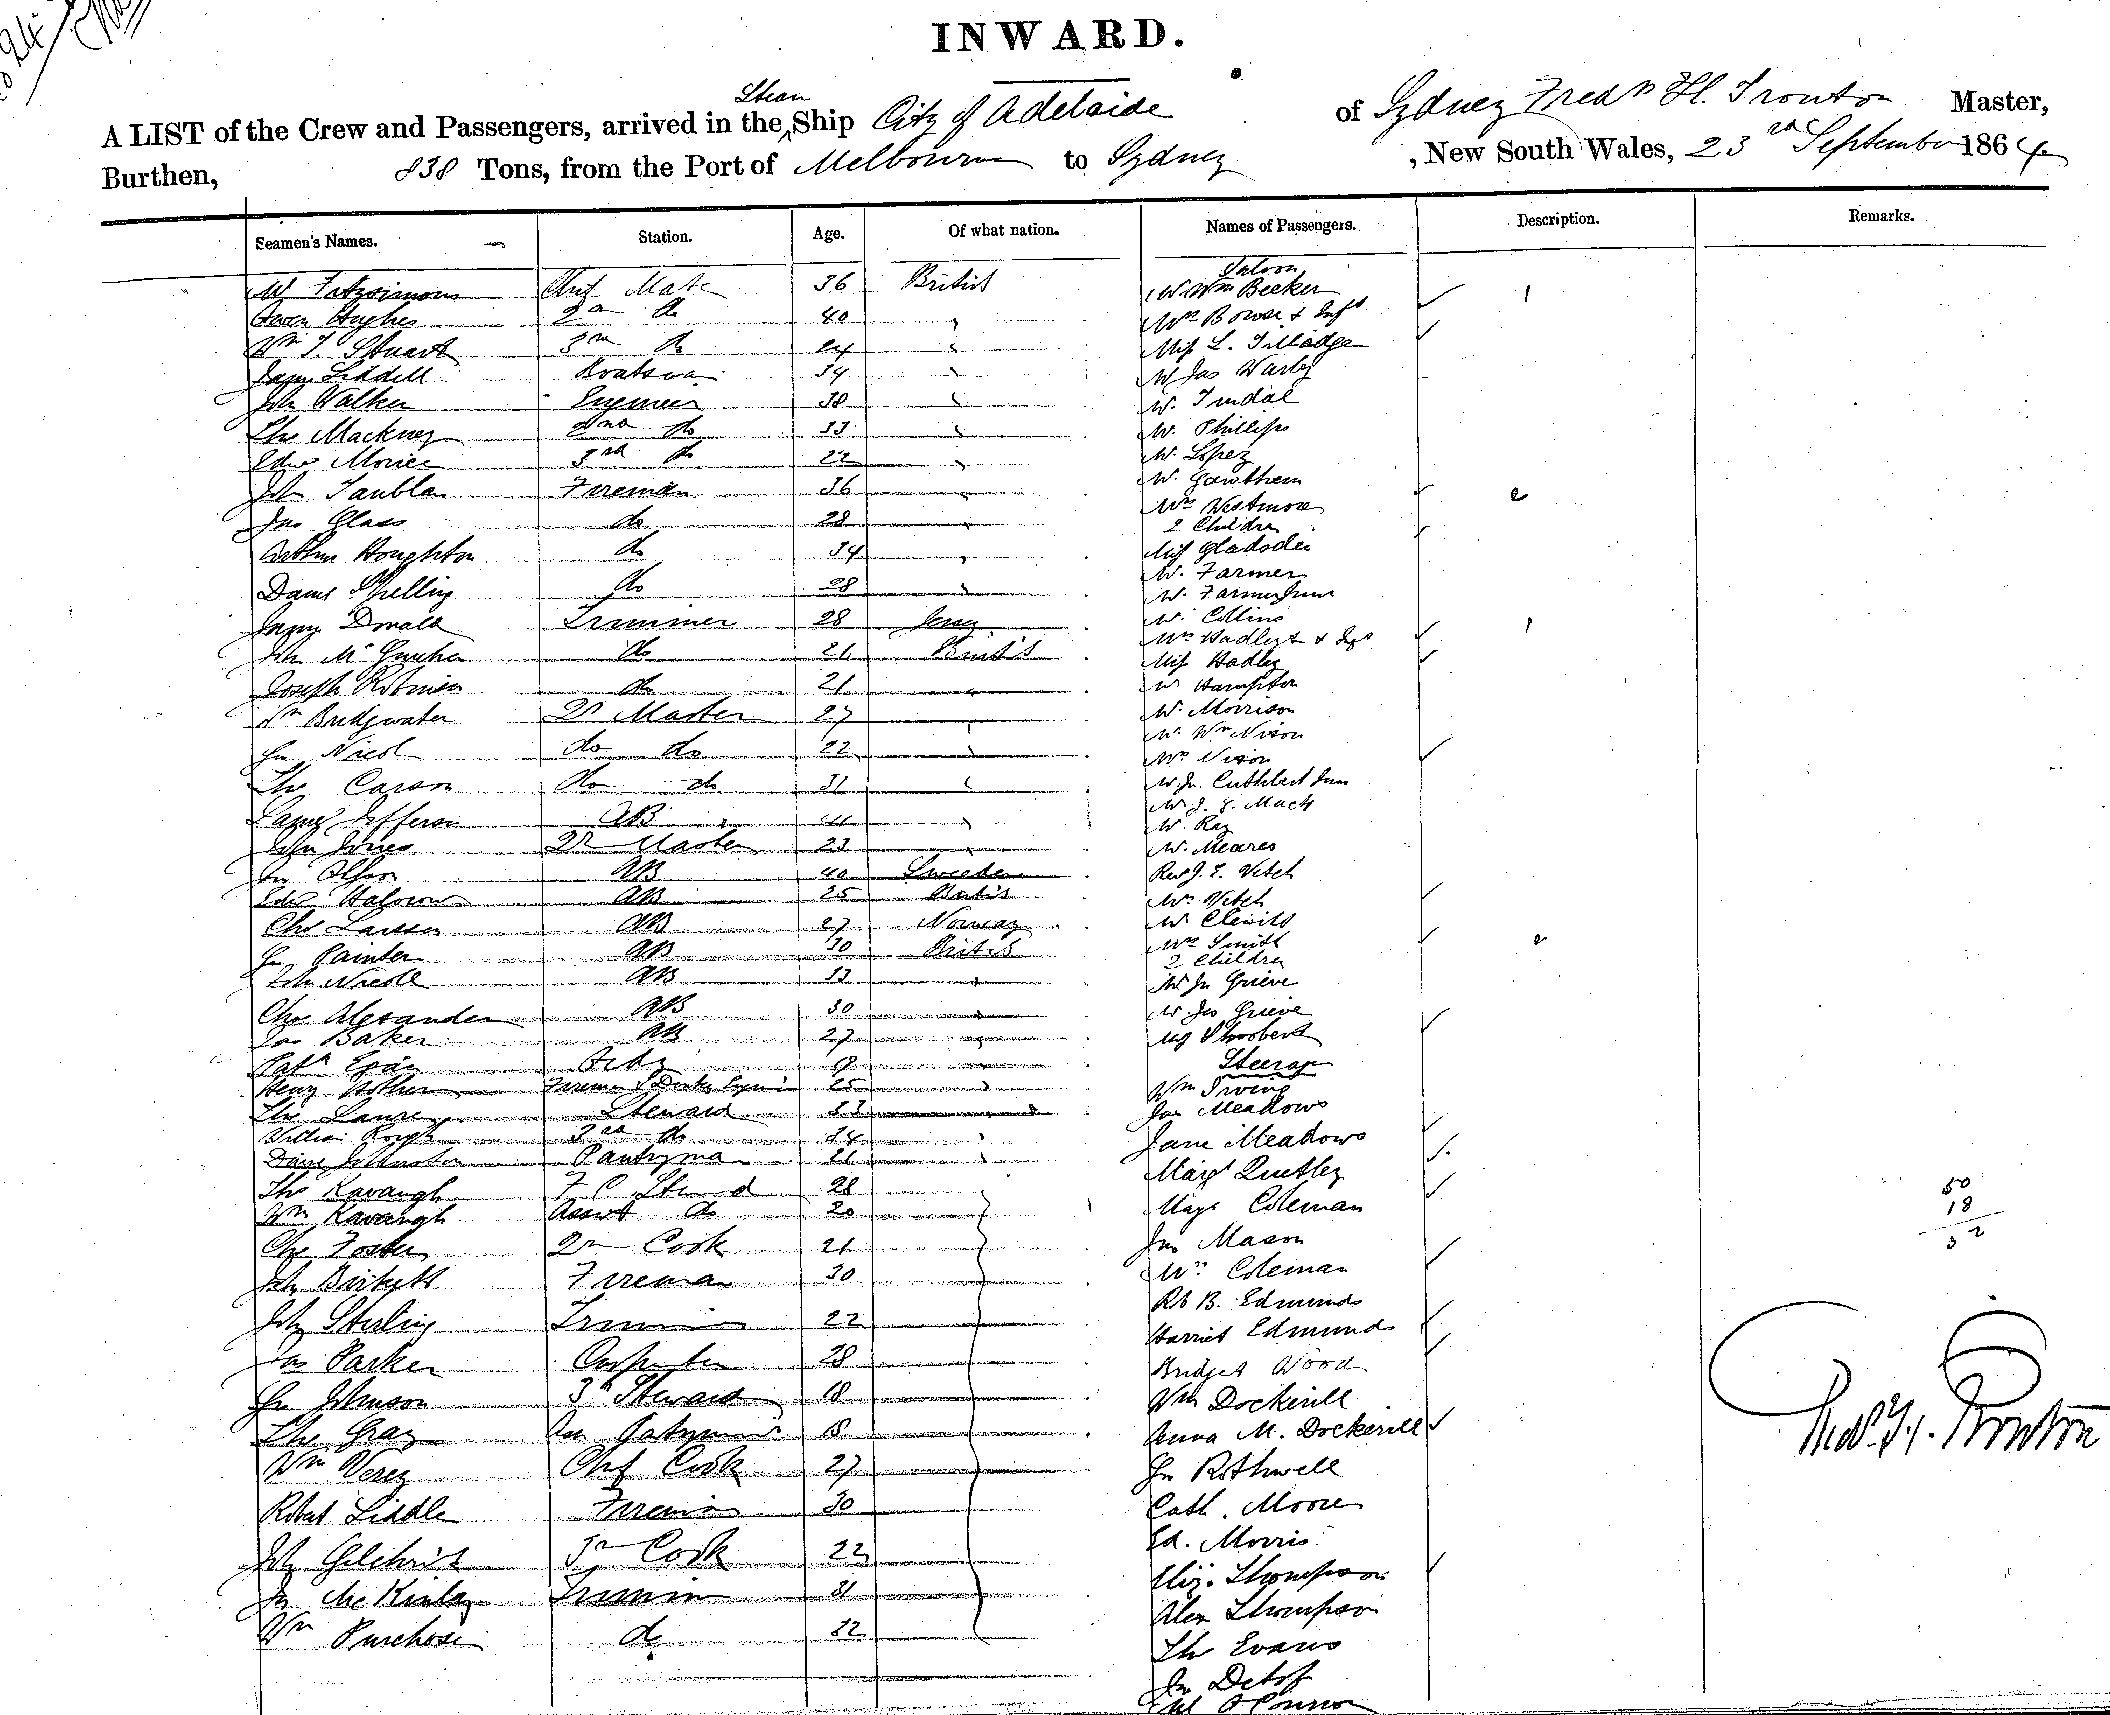 INWARD.
Steam
A LIST of the Crew and Passengers, arrived in the Ship City of Adelaide of Sydney Fredk H. Trouton Master,
Burthen, 838 Tons, from the Port of Melbourne to Sydney , New South Wales, 23rd September 1864
Seamen's Names. Station. Age. Of what nation. Names of Passengers. Description. Remarks.
Saloon
W Fitzsimons Chief Mate 36 British Mr Wm Becker 1
Owen Hughes 2nd do 40 " Mrs Bowse & Inft
Wm J. Stuart 3rd do 24 " Miss L.
James Liddell Boatswain 34 " Mr Jas Warby
John Walker Engineer 38 " Mr Tindal
Thos Mackney 2nd do 33 " Mr Phillips
Edwd 3rd do 22 " Mr Lopez
John Fireman 36 " Mr Gawthern
Mrs Westmore 2
Jno Glass do 28 " 2 Children
Arthur Houghton do 34 " Miss
Mr Farmer
David do 28 " Mr Farmer Junr
James Donald Trimmer 28 Mr Collins
Mrs Hadley & Inft 1
John do 21 British Miss Hadley
Joseph Robinson do 21 " Mr Hampton
Wm Bridgwater Qr Master 27 " Mr Morrison
Mr Wm Nixon
Jno Nicol do do 22 " Mrs Nixon
Thos Carson do do 31 " Mr Jn Cuthbert Junr
Mr J. J. Mack
James Jefferson AB " Mr Ray
John Jones Qr Master 23 " Mr Meares
Jno Olsson AB 40 Sweden Revd J. E. Vetch
Edwd AB 25 British Mrs Vetch
Chs Larsen AB 27 Norway Mr
Mrs Smith 2
Jn Painter AB 30 British 2 Children
John Nicoll AB 33 " Mr Jn Grieve
Chas Alexander AB 30 " Mr Jas Grieve
Jas Baker AB 27 "
Steerage
Patk Egan
Henry 25 " Wm Irving
Thos Steward 33 " Jas Meadows
William 2nd do 34 " Jane Meadows
David Johnston Pantryman 21 " Margt
Thos Kavanagh F C Steward 28 " Margt Coleman
Wm Kavanagh Assist do 20 "
Chs Foster 2nd Cook 21 " Jno Mason
John Birkett Fireman 30 Mrs Coleman
Rt B. Edmunds
John Sterling Trimmer 22 Harriet Edmunds
Jas Parker Carpenter 28 Bridget Wood
Jn Johnson 3rd Steward 18 Wm Dockerill
Thos Gray 18 Anna M. Dockerill
Wm Chf Cook 27 Jn Rothwell
Robert Liddle Fireman 30 Cath. Moore
Ed. Morris
John Gilchrist 3rd Cook 22 Eliz. Thompson
Jn McKinlay Trimmer 31 Alex Thompson
Wm Purchase do 32 Th Evans
Jn
O'Connor
50
18
32
Fredk H. Trouton